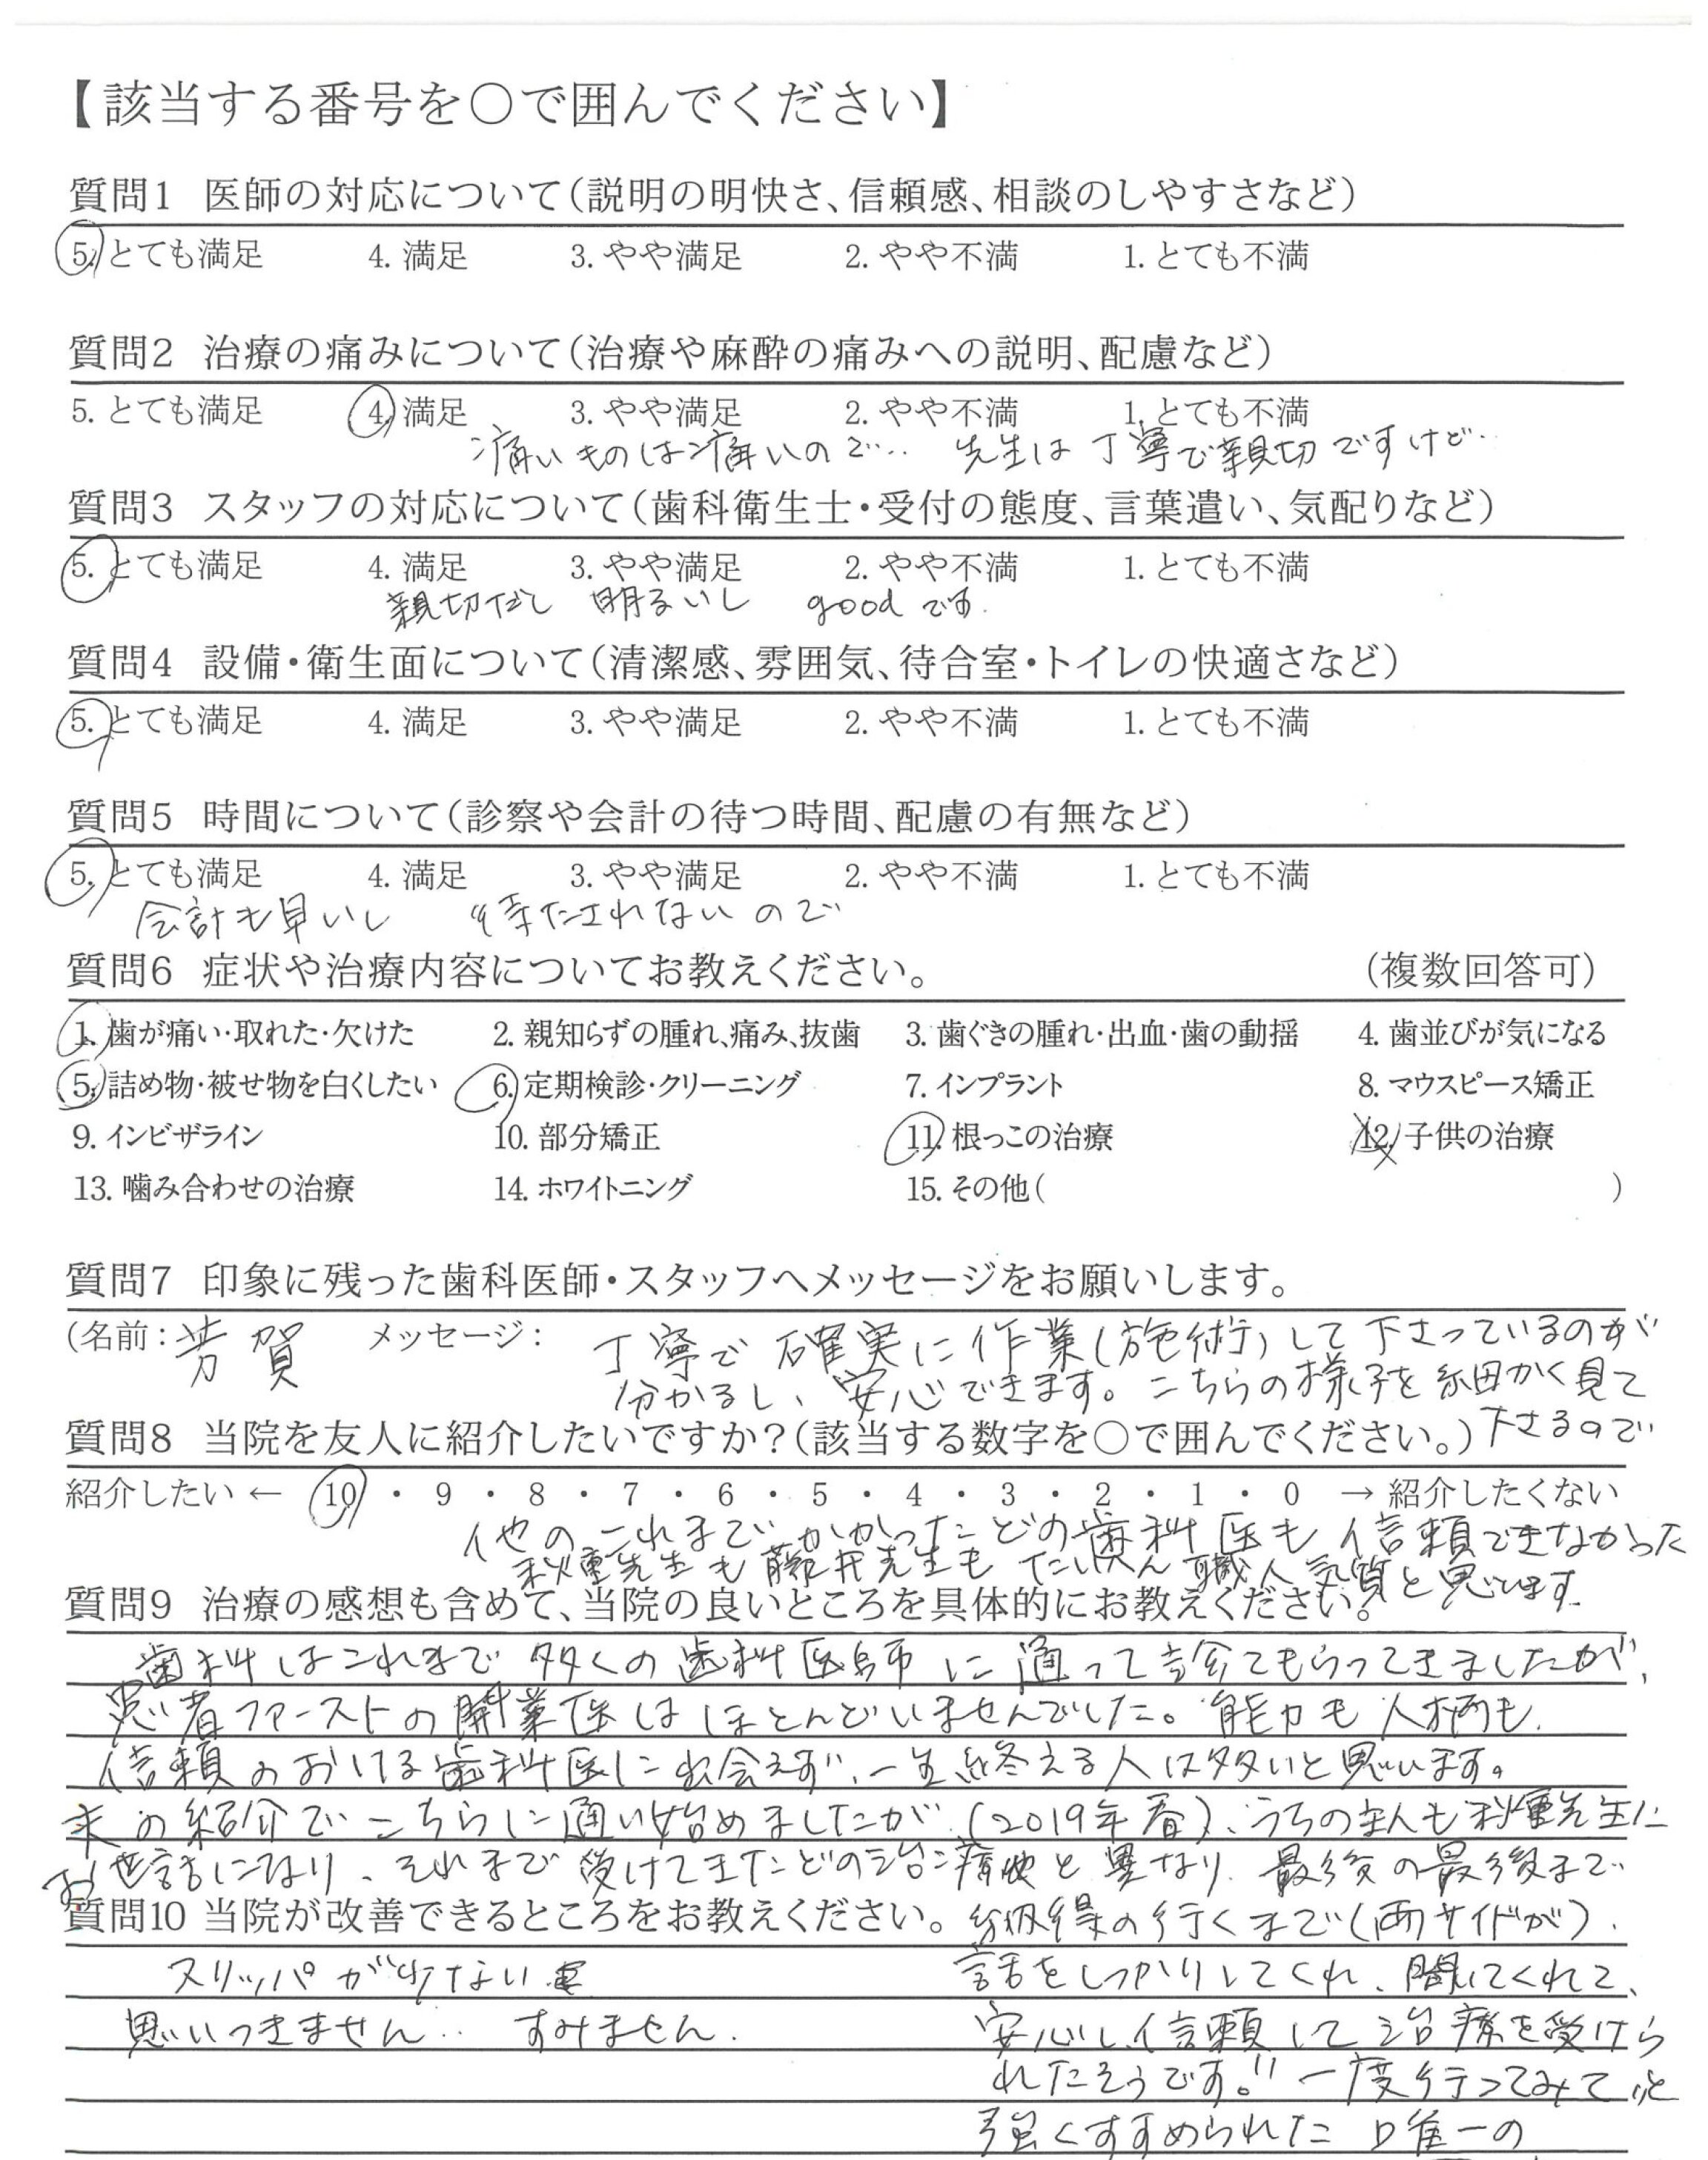 【該当する番号を○で囲んでください】
質問1 医師の対応について(説明の明快さ、信頼感、相談のしやすさなど)
5. とても満足 4. 満足 3. やや満足 2. やや不満 1. とても不満
質問2 治療の痛みについて(治療や麻酔の痛みへの説明、配慮など)
5. とても満足 4. 満足 3. やや満足 2. やや不満 1. とても不満
痛いものは痛いので… 先生は丁寧で親切ですけど…
質問3 スタッフの対応について(歯科衛生士・受付の態度、言葉遣い、気配りなど)
5. とても満足 4. 満足 3. やや満足 2. やや不満 1. とても不満
親切だし 明るいし goodです.
質問4 設備・衛生面について(清潔感、雰囲気、待合室・トイレの快適さなど)
5. とても満足 4. 満足 3. やや満足 2. やや不満 1. とても不満
質問5 時間について(診察や会計の待つ時間、配慮の有無など)
5. とても満足 4. 満足 3. やや満足 2. やや不満 1. とても不満
会計も早いし 待たされないので
質問6 症状や治療内容についてお教えください。 (複数回答可)
1. 歯が痛い・取れた・欠けた 2. 親知らずの腫れ、痛み、抜歯 3. 歯ぐきの腫れ・出血・歯の動揺 4. 歯並びが気になる
5. 詰め物・被せ物を白くしたい 6. 定期検診・クリーニング 7. インプラント 8. マウスピース矯正
9. インビザライン 10. 部分矯正 11. 根っこの治療 12. 子供の治療
13. 噛み合わせの治療 14. ホワイトニング 15. その他( )
質問7 印象に残った歯科医師・スタッフへメッセージをお願いします。
(名前: 芳賀 メッセージ: 丁寧で確実に作業(施術)して下さっているのが
分かるし、安心できます。こちらの様子を細かく見て
下さるので
質問8 当院を友人に紹介したいですか?(該当する数字を○で囲んでください。)
紹介したい ← 10 ・ 9 ・ 8 ・ 7 ・ 6 ・ 5 ・ 4 ・ 3 ・ 2 ・ 1 ・ 0 → 紹介したくない
他のこれまでかかったどの歯科医も信頼できなかった
秋重先生も藤井先生もたいへん職人気質と思います.
質問9 治療の感想も含めて、当院の良いところを具体的にお教えください。
歯科はこれまで多くの歯科医師に通って診てもらってきましたが、
患者ファーストの開業医はほとんどいませんでした。能力も人柄も
信頼のおける歯科医に出会えず、一生終える人は多いと思います。
夫の紹介でこちらに通い始めましたが(2019年春)、うちの主人も秋重先生に
お世話になり、それまで受けてきたどの治療とも異なり、最後の最後まで
納得の行くまで(両サイドが)、
話をしっかりしてくれ、聞いてくれて、
安心し、信頼して治療を受けら
れたそうです。!! 一度行ってみてと
強くすすめられた 唯一の
質問10 当院が改善できるところをお教えください。
スリッパが少ない
思いつきません… すみません.